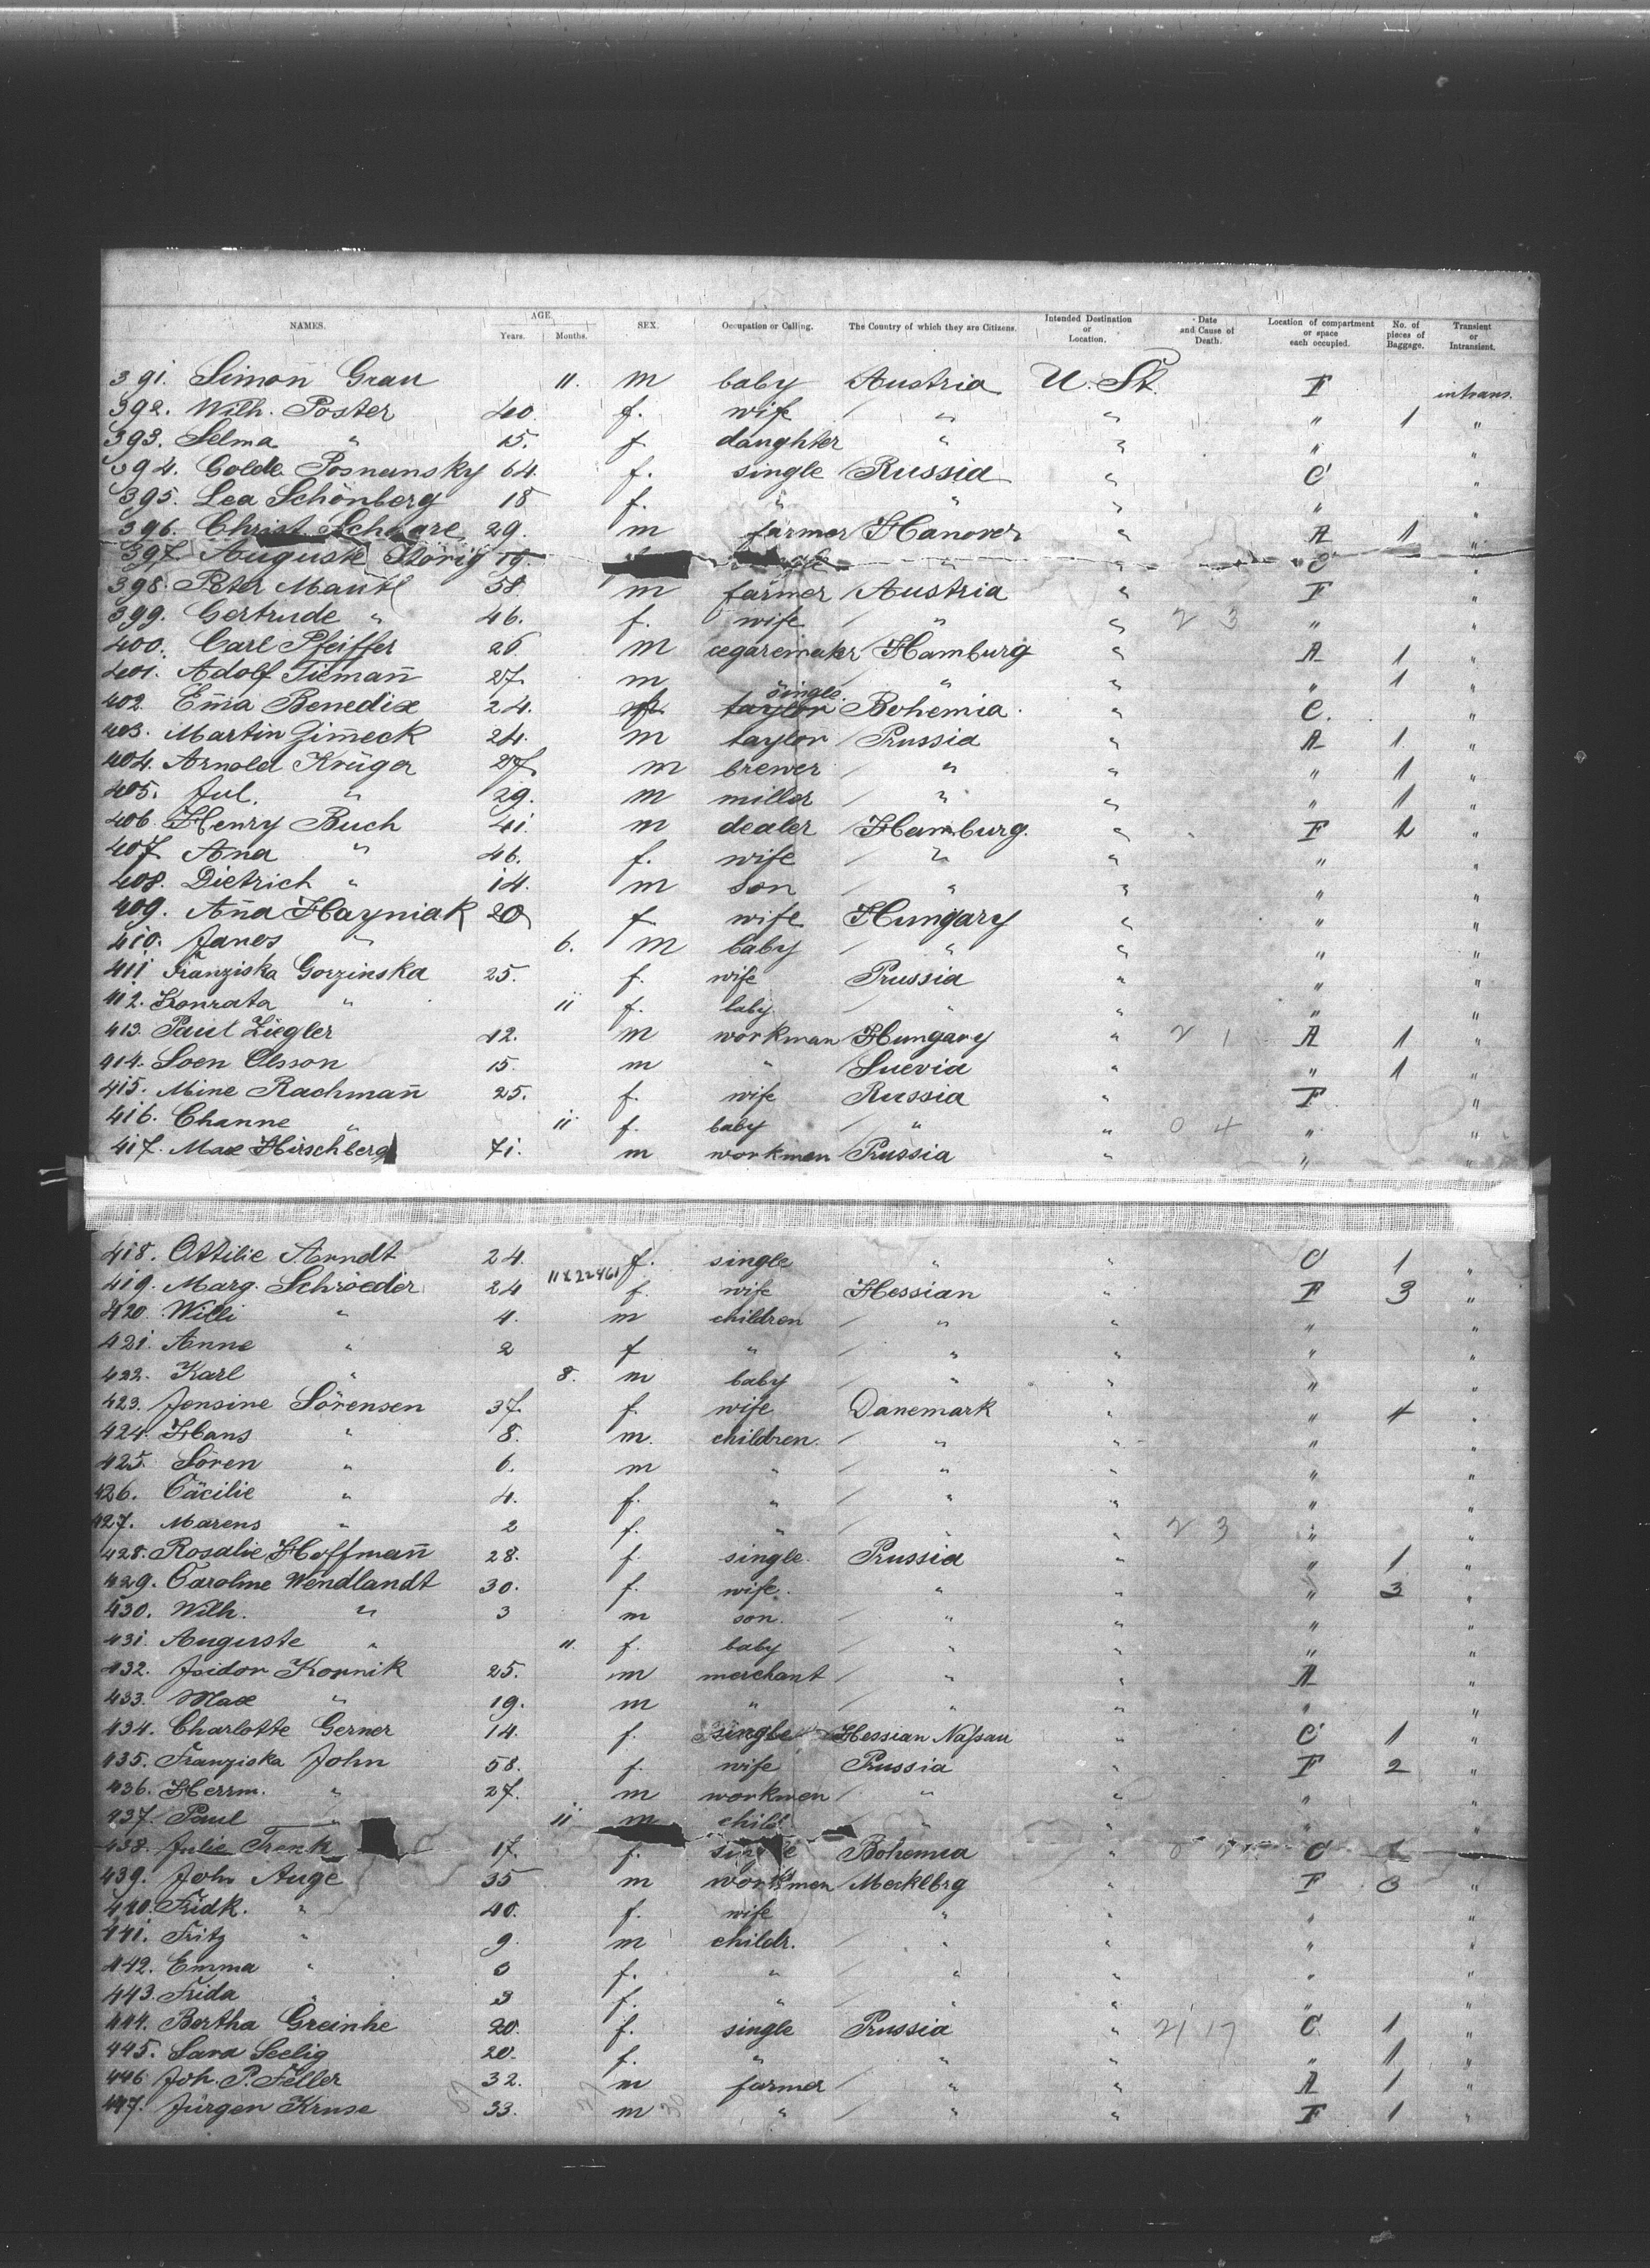 NAMES. AGE. Years. Months. SEX. Occupation or Calling. The Country of which they are Citizens. Intended Destination or Location. Date and Cause of Death. Location of compartment or space each occupied. No. of pieces of Baggage. Transient or Intransient.
391. Simon Grau 11. m baby Austria U. St. F intrans.
392. Wilh. Poster 40. f. wife " " " 1 "
393. Selma " 15. f daughter " " " "
394. Golde Posnansky 64. f. single Russia " C "
395. Lea Schönberg 18 f. " " " " "
396. Christ. Schaare 29. m farmer Hanover " A 1 "
397. Auguste Störig 19. " " C "
398. Peter Mantl 58. m farmer Austria " F "
399. Gertrude " 46. f. wife " " 2 3 " "
400. Carl Pfeiffer 26 m cegaremaker Hamburg " A 1 "
401. Adolf Tiemañ 27. m " " " 1 "
402. Em̄a Benedix 24. single. taylor Bohemia. " C. "
403. Martin Gimeck 24. m taylor Prussia " A 1 "
404. Arnold Krüger 27. m brewer " " " 1 "
405. Jul. " 29. m miller " " " 1 "
406. Henry Buch 41. m dealer Hamburg. " F 2 "
407. Aña " 46. f. wife " " " "
408. Dietrich " 14. m son " " " "
409. Aña Hayniak 20 f wife Hungary " " "
410. Janes " 6. m baby " " " "
411 Franziska Gorzinska 25. f. wife Prussia " " "
412. Konrata " 11 f. baby. " " " "
413. Paul Ziegler 42. m workman Hungary " 2 1 A 1 "
414. Soen Olsson 15. m " Suevia " " 1 "
415. Mine Rachmañ 25. f. wife Russia " F "
416. Channe " 11 f. baby " " 0 4 " "
417. Max Hirschberg 71. m workmen Prussia " " "
418. Ottilie Arndt 24. f. single " " C 1 "
419. Marg. Schröeder 24 11x22461 f. wife Hessian " F 3 "
420. Willi " 4. m children " " " "
421. Anne " 2 f " " " " "
422. Karl " 8. m baby " " " "
423. Jensine Sörensen 37. f. wife Danemark " " 4 "
424. Hans " 8. m. children. " " " "
425. Sören " 6. m " " " " "
426. Cäcilie " 4. f. " " " " "
427. Marens " 2 f. " " " 2 3 " "
428. Rosalie Hoffmañ 28. f. single. Prussia " " 1 "
429. Caroline Wendlandt 30. f. wife. " " " 3 "
430. Wilh. " 3 m son. " " " "
431. Auguste " 11. f. baby " " " "
432. Isidor Kornik 25. m merchant " " A "
433. Max " 19. m " " " " "
434. Charlotte Gerner 14. f. single Hessian Nassau " C 1 "
435. Franziska John 58. f. wife Prussia " F 2 "
436. Herrm. " 27. m workmen " " " "
437. Paul " 11 m child " " " "
438. Julie Trenk 17. f. single Bohemia " C 1
439. John Auge 35 m workmen Mecklbrg " F 3 "
440. Fridk. " 40. f. wife " " " "
441. Fritz " 9. m childr. " " " "
442. Emma " f. " " " " "
443. Frida " 3 f. " " " " "
444. Bertha Greinke 20. f. single Prussia " 21 17 C. 1 "
445. Sara Seelig 20. f. " " " " 1 "
446 Joh. P. Feller 32. m farmer " " A 1 "
447. Jürgen Kruse 33. m " " " F 1 "